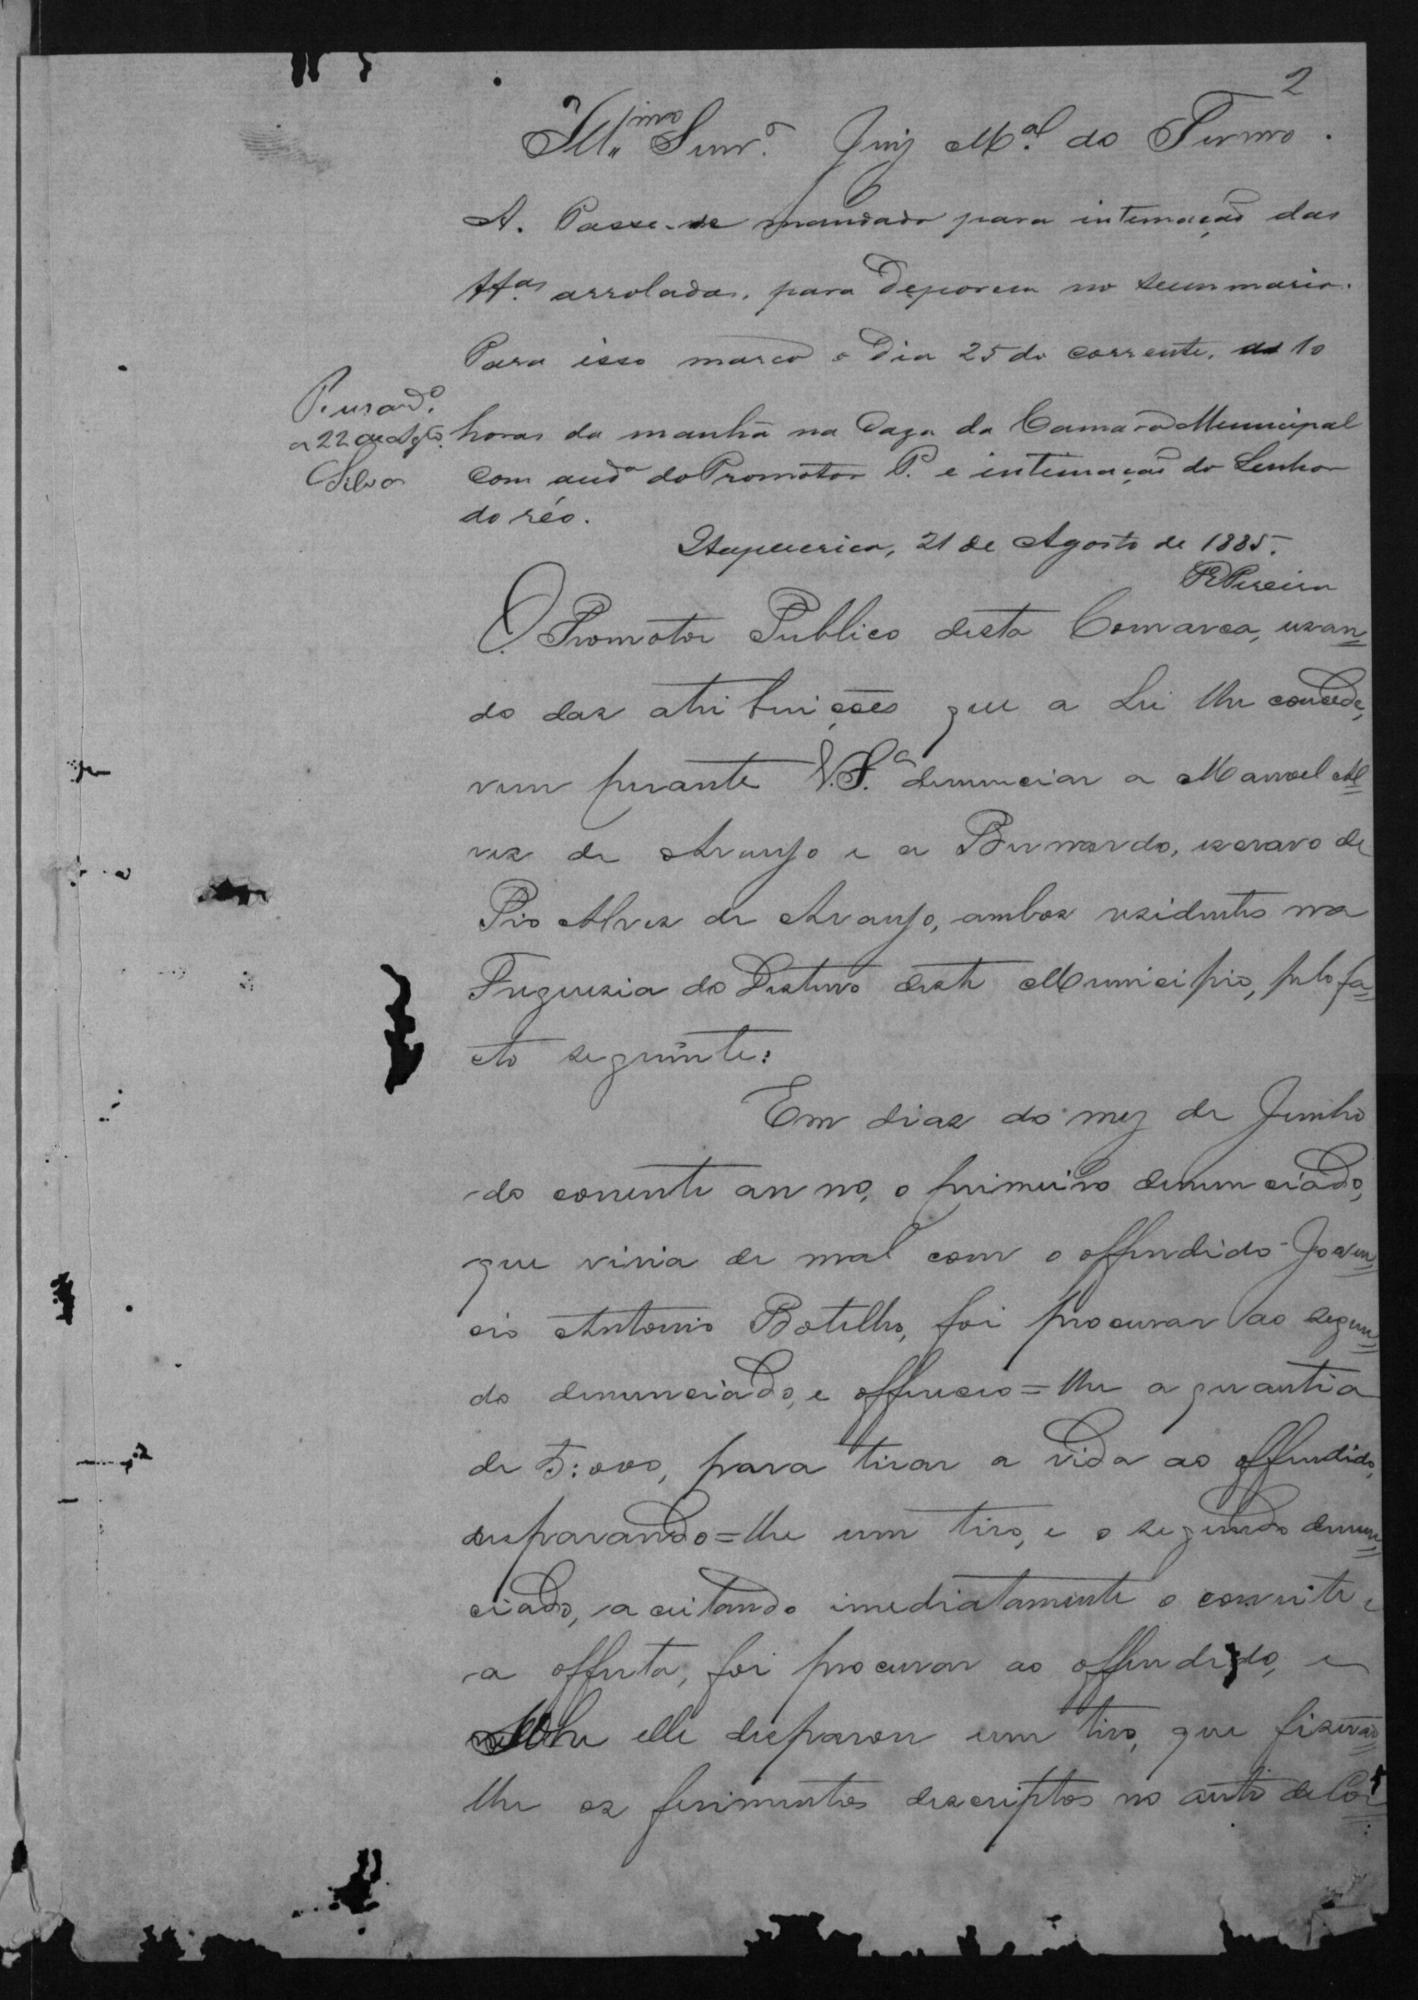 2
Ill.mo Senr.º Juiz M.al do Termo.
A. Passe-se mandado para intimação das
tt.as arroladas, para deporem no summario.
Para isso marco o dia 25 do corrente, as 10
horas da manhã na Caza da Camara Municipal
com aud.a do Promotor P. e intimação do Senhor
do réo.
Itapecerica, 21 de Agosto de 1885.
Pereira
a 22 de Agto.
Silva
O Promotor Publico desta Comarca, usan=
do das atribuições que a Lei lhe concede,
vem perante V.S.ª denunciar a Manoel Al=
ves de Araujo e a Bernardo, escravo de
Pio Alves de Araujo, ambos residentes na
Freguesia do Desterro deste Municipio, pelo fa=
cto seguinte:
Em dias do mez de Junho
do corrente anno, o primeiro denunciado,
que vivia de mal com o offendido Joven=
cio Antonio Botelho, foi procurar ao segun=
do denunciado, e offereceo=lhe a quantia
de 5:000, para tirar a vida ao offendido,
disparando=lhe um tiro, e o segundo denun=
ciado, aceitando imediatamente o convite e
a offerta, foi procurar ao offendido, e
elle disparou um tiro, que fizerão=
lhe os ferimentos descriptos no auto de Cor=